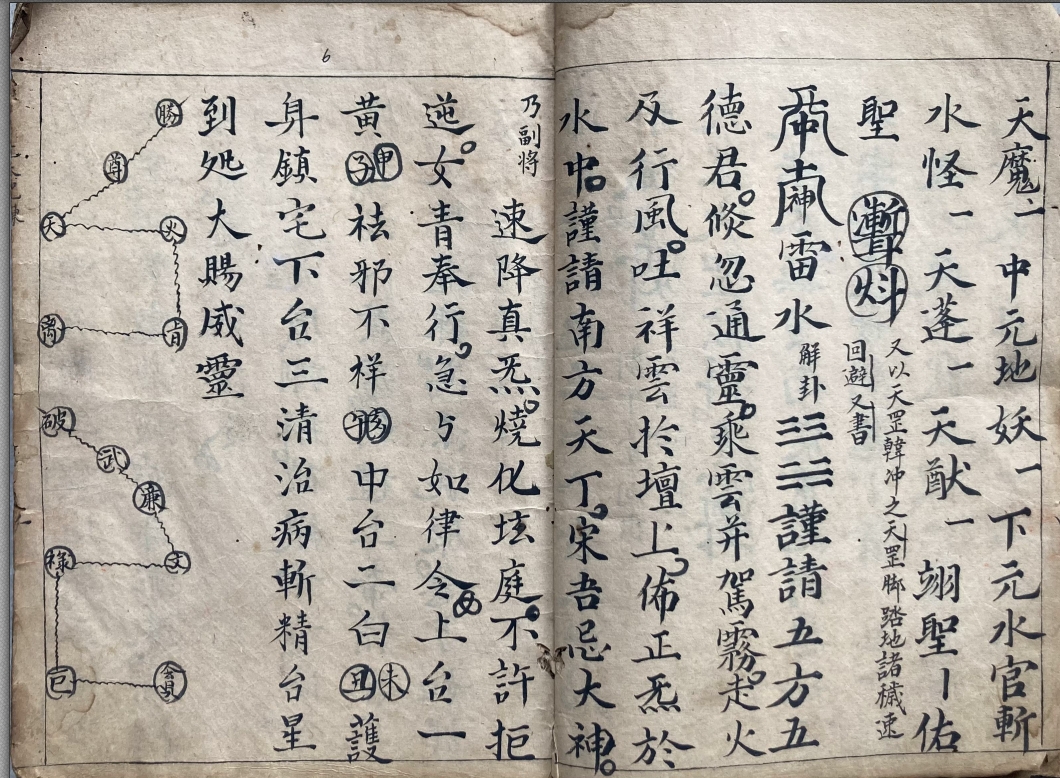 天魔一 中元地妖一 下元水官斬
水怪一 天蓬一 天猷一 翊聖一佑
聖
又以天罡韓冲之天罡脚踏地諸穢速
回避又書
雷水
解卦
謹請五方五
德君倐忽通靈乘雲并駕霧走火
及行風吐祥雲扵壇上佈正炁於
水中謹請南方天丁宋吾忌大神
6
乃副将
速降真炁燒化坛庭不許拒
逆女青奉行急ㄅ如律令上台一
黄甲子祛邪不样中台二白未丑護
身鎮宅下台三清治病斬精台星
到処大賜威靈
勝
尊
天
火
破
武
廉
文
祿
巨
貪